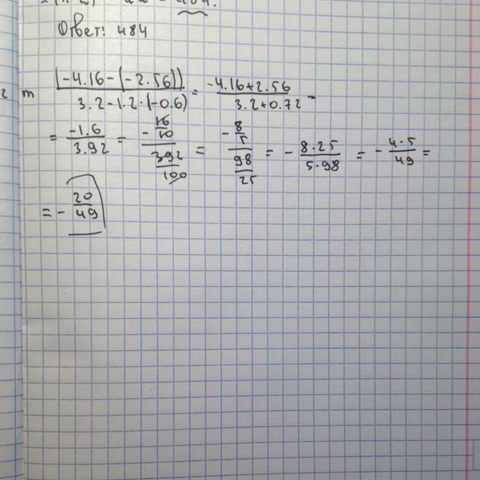 Ответ: 484
(-4.16-(-2.56)) / 3.2-1.2·(-0.6) = -4.16+2.56 / 3.2+0.72 =
= -1.6 / 3.92 = -16/10 / 392/100 = -8/5 / 98/25 = - 8·25 / 5·98 = - 4·5 / 49 =
= - 20/49